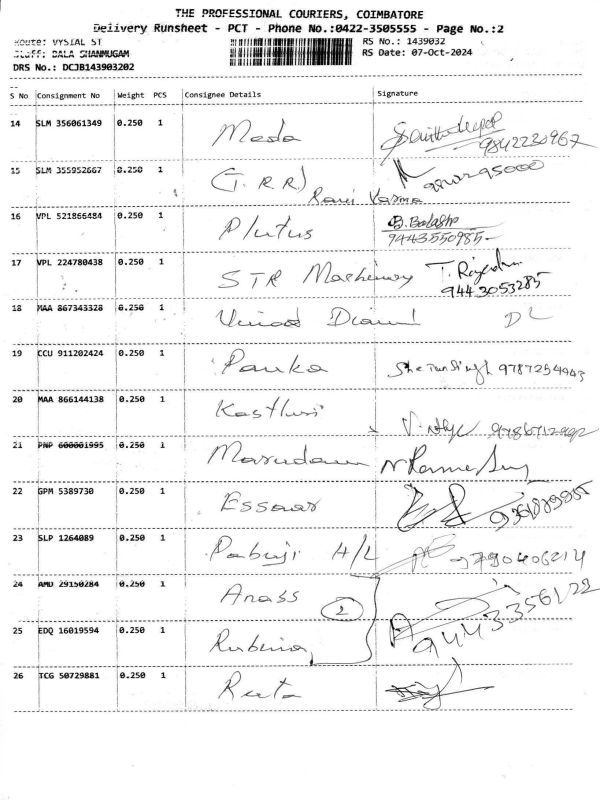 THE PROFESSIONAL COURIERS, COIMBATORE
Delivery Runsheet - PCT - Phone No.:0422-3505555 - Page No.:2
Route: VYSIAL ST RS No.: 1439032
Staff: BALA SHANMUGAM RS Date: 07-Oct-2024
DRS No.: DCJB143903202
S No Consignment No Weight PCS Consignee Details Signature
14 SLM 356061349 0.250 1 Meda 9842230967
15 SLM 355952667 0.250 1 (T.R.R)
Ravi Varma
16 VPL 521866484 0.250 1 Plutus B. Balasho
9443550985
17 VPL 224780438 0.250 1 STR Machinery T. Rajendran
9443053285
18 MAA 867343328 0.250 1 Vinod Diamond DL
19 CCU 911202424 0.250 1 Panka Sherunsingh 9787254943
20 MAA 866144138 0.250 1 Kasthuri
21 PNP 600001995 0.250 1
22 GPM 5389730 0.250 1 Essaar 9361889955
23 SLP 1264089 0.250 1 Pabuji H/L 9790406214
24 AMD 29150284 0.250 1 Arass 2
9443356122
25 EDQ 16019594 0.250 1 Rubina
26 TCG 50729881 0.250 1 Reeta